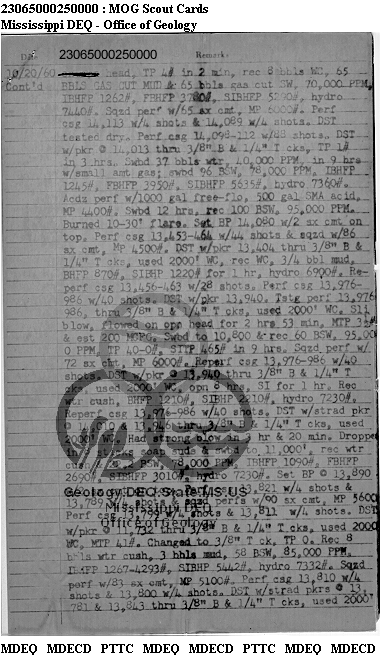 23065000250000 : MOG Scout Cards
Mississippi DEQ - Office of Geology
23065000250000 Remarks
10/20/60 head, TP 4# in 2 min, rec 8 bbls WC, 65
Cont'd & BBLS GAS CUT MUD & 65 bbls gas cut SW, 70,000 PPM,
IBHFP 1262#, FBHFP SIBHFP hydro
7440#. Sqzd perf w/65 sx cmt, MP 6000#. Perf
csg 14,113 w/4 shots & 14,089 w/4 shots. DST
tested dry. Perf csg 14,098-112 w/88 shots. DST
w/pkr @ 14,013 thru 3/8" B & 1/4" T cks, TP 1#
in 3 hrs. Swbd 37 bbls wtr, 40,000 PPM, in 9 hrs
w/small amt gas; swbd 96 BSW, 78,000 PPM. IBHFP
1245#, FBHFP 3950#, SIBHFP 5635#, hydro 7360#.
Acdz perf w/1000 gal free-flo, 500 gal SMA acid,
MP 4400#. Swbd 12 hrs, rec 100 BSW, 95,000 PPM.
Burned 10-30' flare. Set BP 14,080 w/2 sx cmt on
top. Perf csg 13,453-464 w/44 shots & sqzd w/86
sx cmt, MP 4500#. DST w/pkr 13,404 thru 3/8" B &
1/4" T cks, used 2000' WC, rec WC, 3/4 bbl mud,
BHFP 870#, SIBHP 1220# for 1 hr, hydro 6900#. Re-
perf csg 13,456-463 w/28 shots. Perf csg 13,976-
986 w/40 shots. DST w/pkr 13,940. Tstg perf 13,976-
986, thru 3/8" B & 1/4" T cks, used 2000' WC. Sli
blow, flowed on opn head for 2 hrs 53 min, MTP
& est 200 MCFG. Swbd to 10,800 & rec 60 BSW, 95,00
0 PPM, TP 40-0#, SITP 465# in 9 hrs. Sqzd perf w/
72 sx cmt, MP 6000#. Reperf csg 13,976-986 w/40
shots. DST w/pkr @ 13,940 thru 3/8" B & 1/4" T
cks, used 2000' WC, opn 8 hrs, SI for 1 hr. Rec
wtr cush, BHFP 1210#, SIBHP hydro 7230#.
Reperf csg 13,976-986 w/40 shots. DST w/strad pkr
thru 3/8" B & 1/4" T cks, used
2000' WC. Had strong blow in hr & 20 min. Dropped
soap suds & swbd to 11,000', rec wtr
cush BSW, 78,000 PPM, IBHFP 1090#, FBHFP
2690#, SIBHFP 3010#, hydro 7230#. Set BP @ 13,890
821 w/4 shots &
13,789 w/4 shots, sqzd w/60 sx cmt, MP 5600
Perf csg 13,799 w/4 shots & 13,811 w/4 shots. DST
w/pkr @ 11,732 thru 3/8" B & 1/4" T cks, used 2000
WC, MTP 41#. Changed to 3/8" T ck, TP 0. Rec 8
bbls wtr cush, 3 bbls mud, 58 BSW, 85,000 PPM,
IBHFP 1267-4293#, SIBHP 5442#, hydro 7332#. Sqzd
perf w/83 sx cmt, MP 5100#. Perf csg 13,810 w/4
shots & 13,800 w/4 shots. DST w/strad pkrs @ 13,
781 & 13,843 thru 3/8" B & 1/4" T cks, used 2000'
Geology.DEQ.State.MS.US
Mississippi DEQ
Office of Geology
MDEQ MDECD PTTC MDEQ MDECD PTTC MDEQ MDECD MDEQ